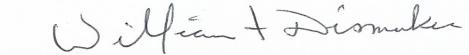 William F Dismukes